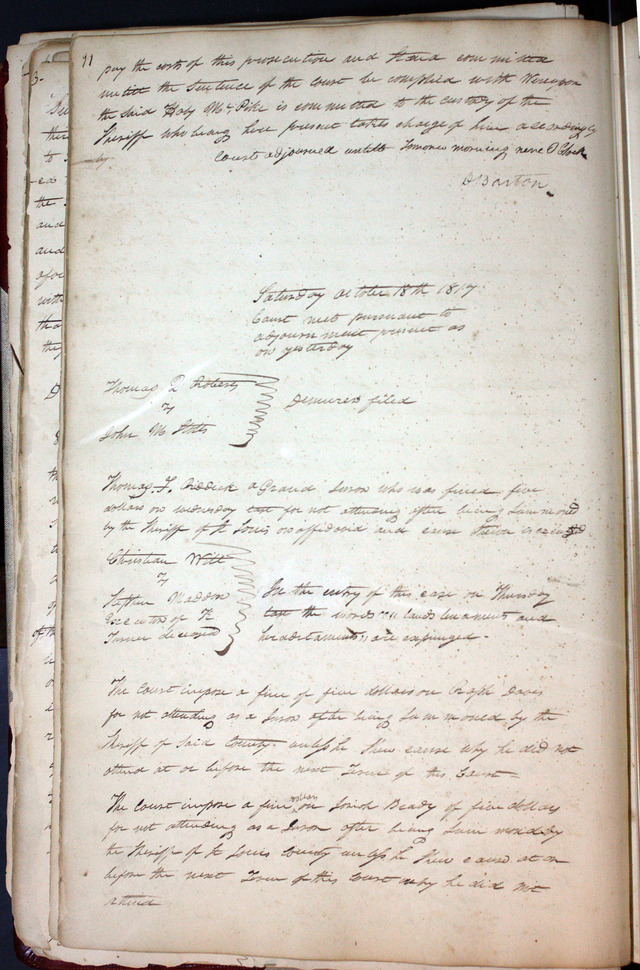 11
pay the costs of this prosecution and stand committed
untill the sentence of the Court be complied with Whereupon
the said M. Poke is committed to the custody of the
Sheriff who being here present takes charge of him accordingly
Court adjourned untill tomorrow morning nine O Clock
D Barton
Saturday October 18th 1817
Court met pursuant to
adjournment present as
on yesterday
Thomas Roberts
vs
John M
Demurer filed
Thomas F. Riddick a Grand Juror who was fined five
dollars on wednesday last for not attending after being summoned
by the Sheriff of St Louis on affidavit and cause shewn is
Christian Witt
vs
Stephen Maddon
Executor of
Turner deceased
In the entry of this case on Thursday
last the words "lands tenaments and
heradetaments" are expunged.
The Court impose a fine of five dollars on Ralph Davis
for not attending as a Juror after being summoned by the
Sheriff of said County. unless he shew cause why he did not
attend at or before the next Term of this Court
The Court impose a fine on Josiah Beady of five dollars
for not attending as a Juror after being summoned by
the Sheriff of St Louis County unless he shew cause at or
before the next Term of this Court why he did not
attend